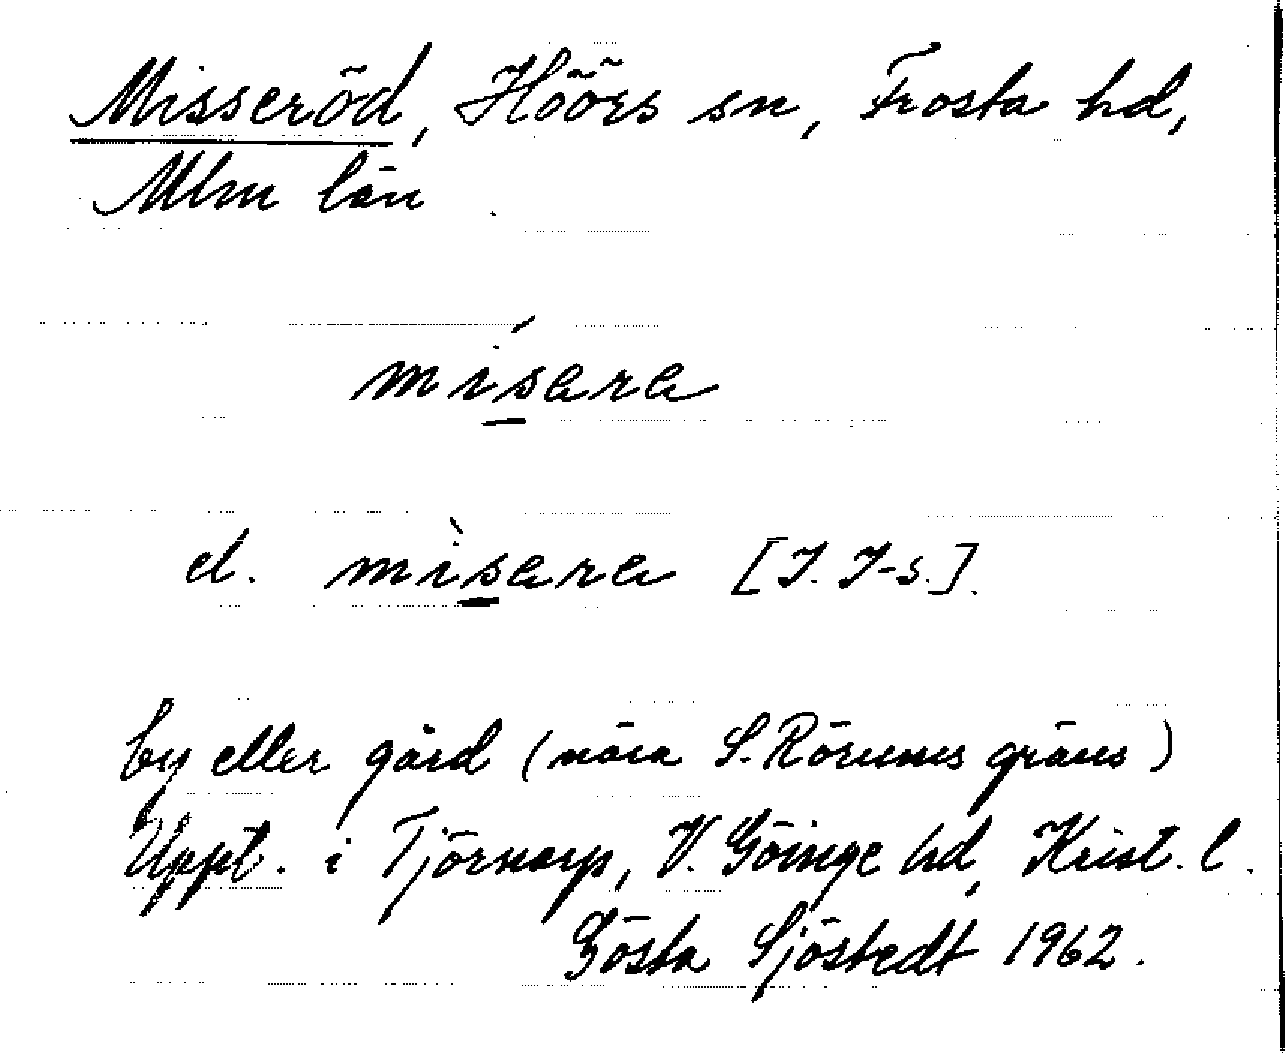 Misseröd, Höörs sn, Frosta hd,
Mlm län
mísare
el. mìsare [I. I-s.]
by eller gård (nära S. Rörums gräns)
Uppt. i Tjörnarp, V. Göinge hd, Krist. l.
Gösta Sjöstedt 1962.